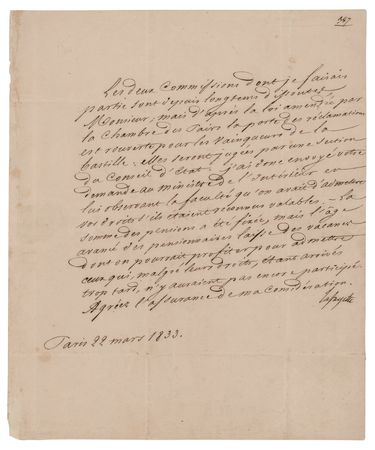 387
Les deux Commissions dont je faisais
partie sont depuis longtems dissoutes
Monsieur, mais d'après la loi amendée par
la Chambre des Pairs la porte des réclamations
est rouverte pour les Vainqueurs de la
Bastille. Elles seront jugées par une section
du Conseil d'Etat. J'ai donc envoyé votre
demande au ministre de l'Intérieur en
lui observant la faculté qu'on avait d'admettre
vos droits s'ils étaient reconnus valables. La
somme des pensions a été fixée, mais l'âge
avancé des pensionnaires laisse des vacances
dont on pourrait profiter pour admettre
ceux qui, malgré leurs droits, étant arrivés
trop tard, n'y auraient pas encore participé.
Agréez l'assurance de ma considération.
Lafayette
Paris 22 mars 1833.